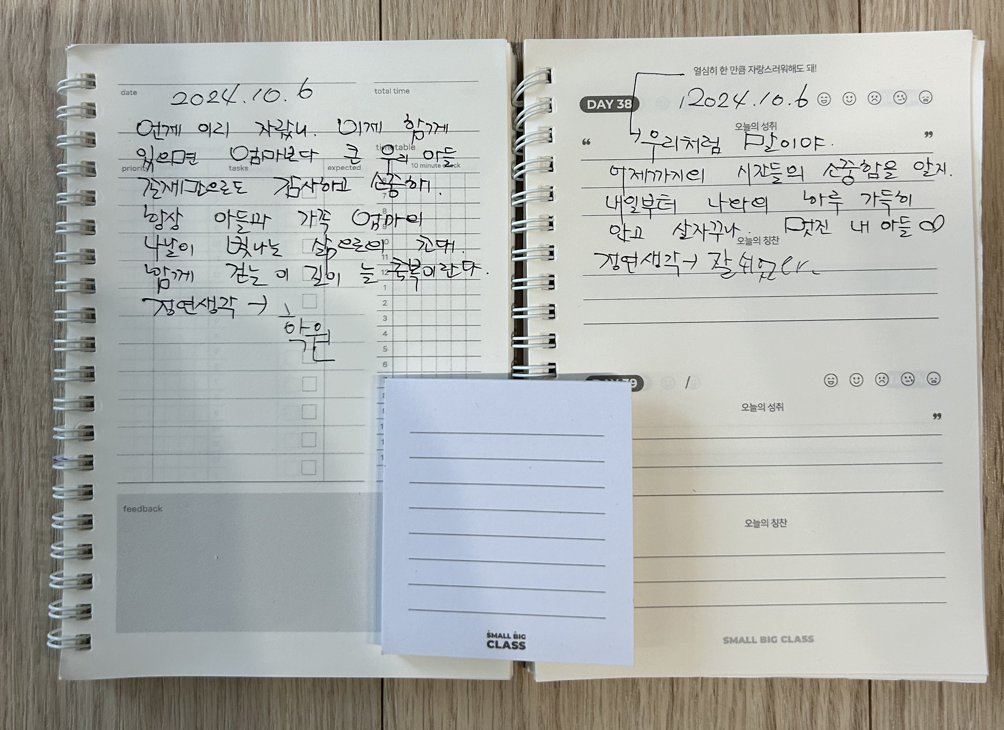 date 2024.10.6 total time
언제 이리 자랐니. 이제 함께
있으면 엄마보다 큰 우리 아들
timetable
priority tasks expected 10 minute check
존재만으로도 감사하고 소중해.
항상 아들과 가족 엄마의
나날이 빛나는 삶으로의 초대.
함께 걷는 이 길이 늘 축복이란다.
정연생각 → 학원
feedback
열심히 한 만큼 자랑스러워해도 돼!
DAY 38 2024.10.6
오늘의 성취
“ 우리처럼 말이야. ”
어제까지의 시간들의 소중함을 알지.
내일부터 나만의 하루 가득히
안고 살자꾸나. 멋진 내 아들 ∞
오늘의 칭찬
정연생각 → 잘
DAY 39 /
오늘의 성취
”
오늘의 칭찬
SMALL BIG CLASS
SMALL BIG
CLASS